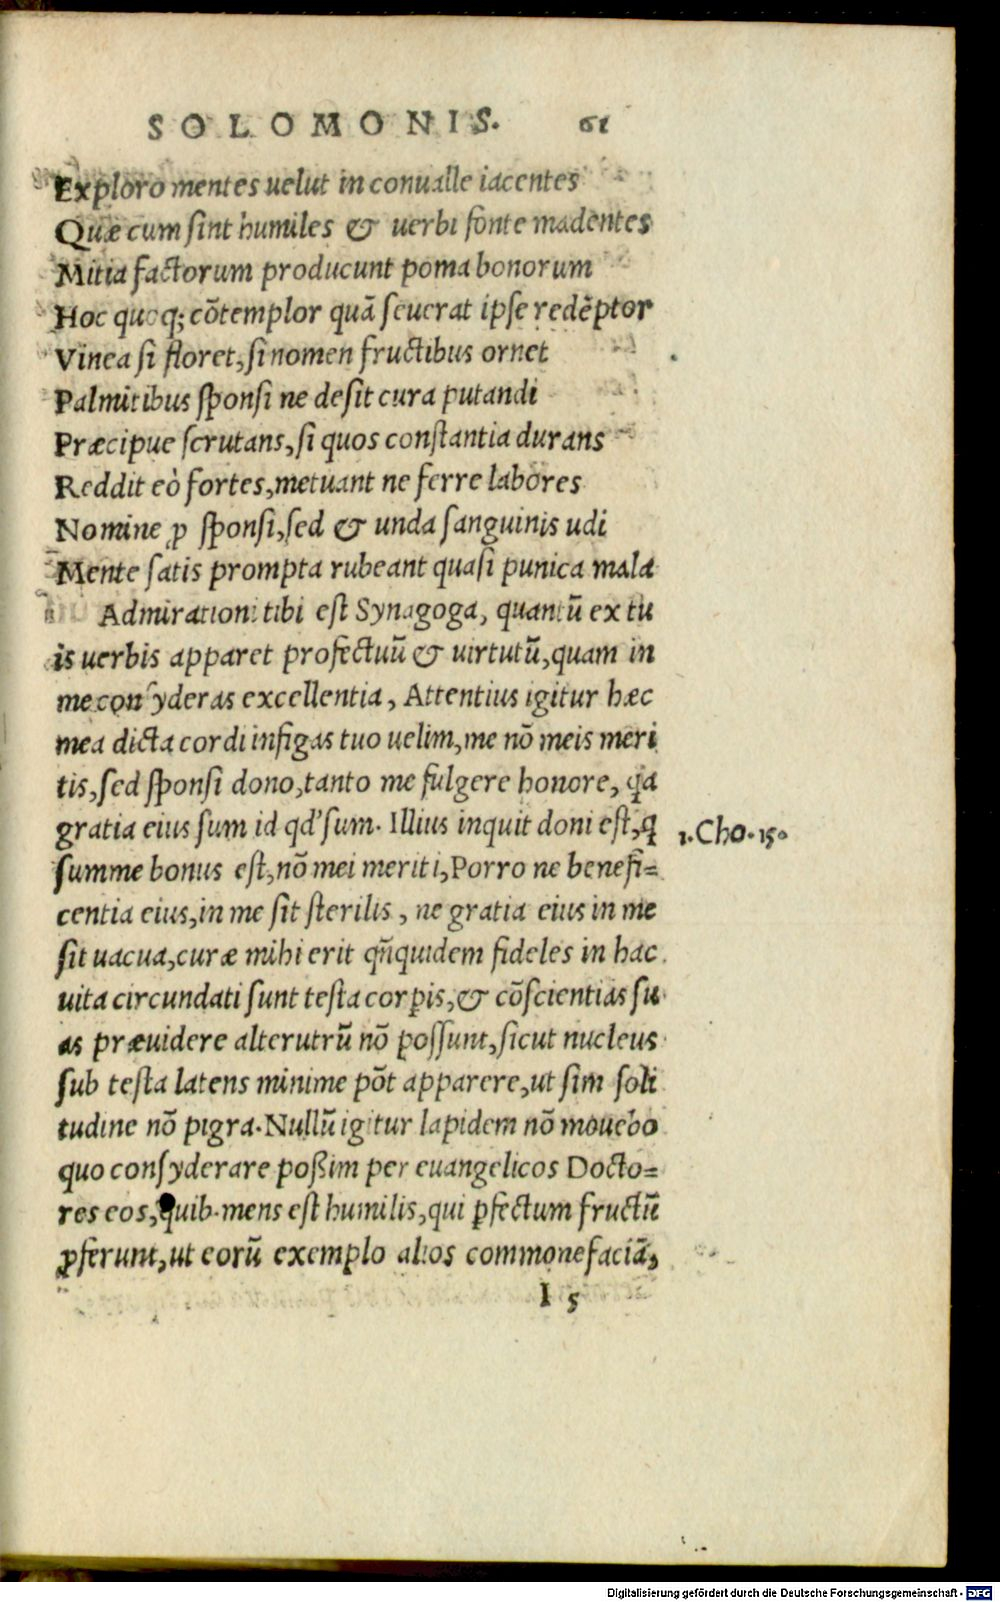 SOLOMONIS. 61
Exploro mentes uelut in conualle iacentes
Quæ cum sint humiles & uerbi fonte madentes
Mitia factorum producunt poma bonorum
Hoc quoq; cōtemplor quā seuerat ipse redēptor
Vinea si floret, si nomen fructibus ornet
Palmitibus sponsi ne desit cura putandi
Præcipue scrutans, si quos constantia durans
Reddit eò fortes, metuant ne ferre labores
Nomine ꝓ sponsi, sed & unda sanguinis udi
Mente satis prompta rubeant quasi punica mala
Admirationi tibi est Synagoga, quantū ex tu
is uerbis apparet profectuū & uirtutū, quam in
me consyderas excellentia, Attentius igitur hæc
mea dicta cordi infigas tuo uelim, me nō meis meri
tis, sed sponsi dono, tanto me fulgere honore, qa
gratia eius sum id qd' sum. Illius inquit doni est, q
1. Cho. 15.
summe bonus est, nō mei meriti, Porro ne benefi=
centia eius, in me sit sterilis, ne gratia eius in me
sit uacua, curæ mihi erit qn̄quidem fideles in hac
uita circundati sunt testa corꝑis, & cōscientias su
as præuidere alterutrū nō possunt, sicut nucleus
sub testa latens minime pōt apparere, ut sim soli
tudine nō pigra. Nullū igitur lapidem nō mouebo
quo consyderare poßim per euangelicos Docto=
res eos, quib. mens est humilis, qui ꝑfectum fructū
ꝓferunt, ut eorū exemplo alios commonefaciā,
I 5
Digitalisierung gefördert durch die Deutsche Forschungsgemeinschaft - DFG